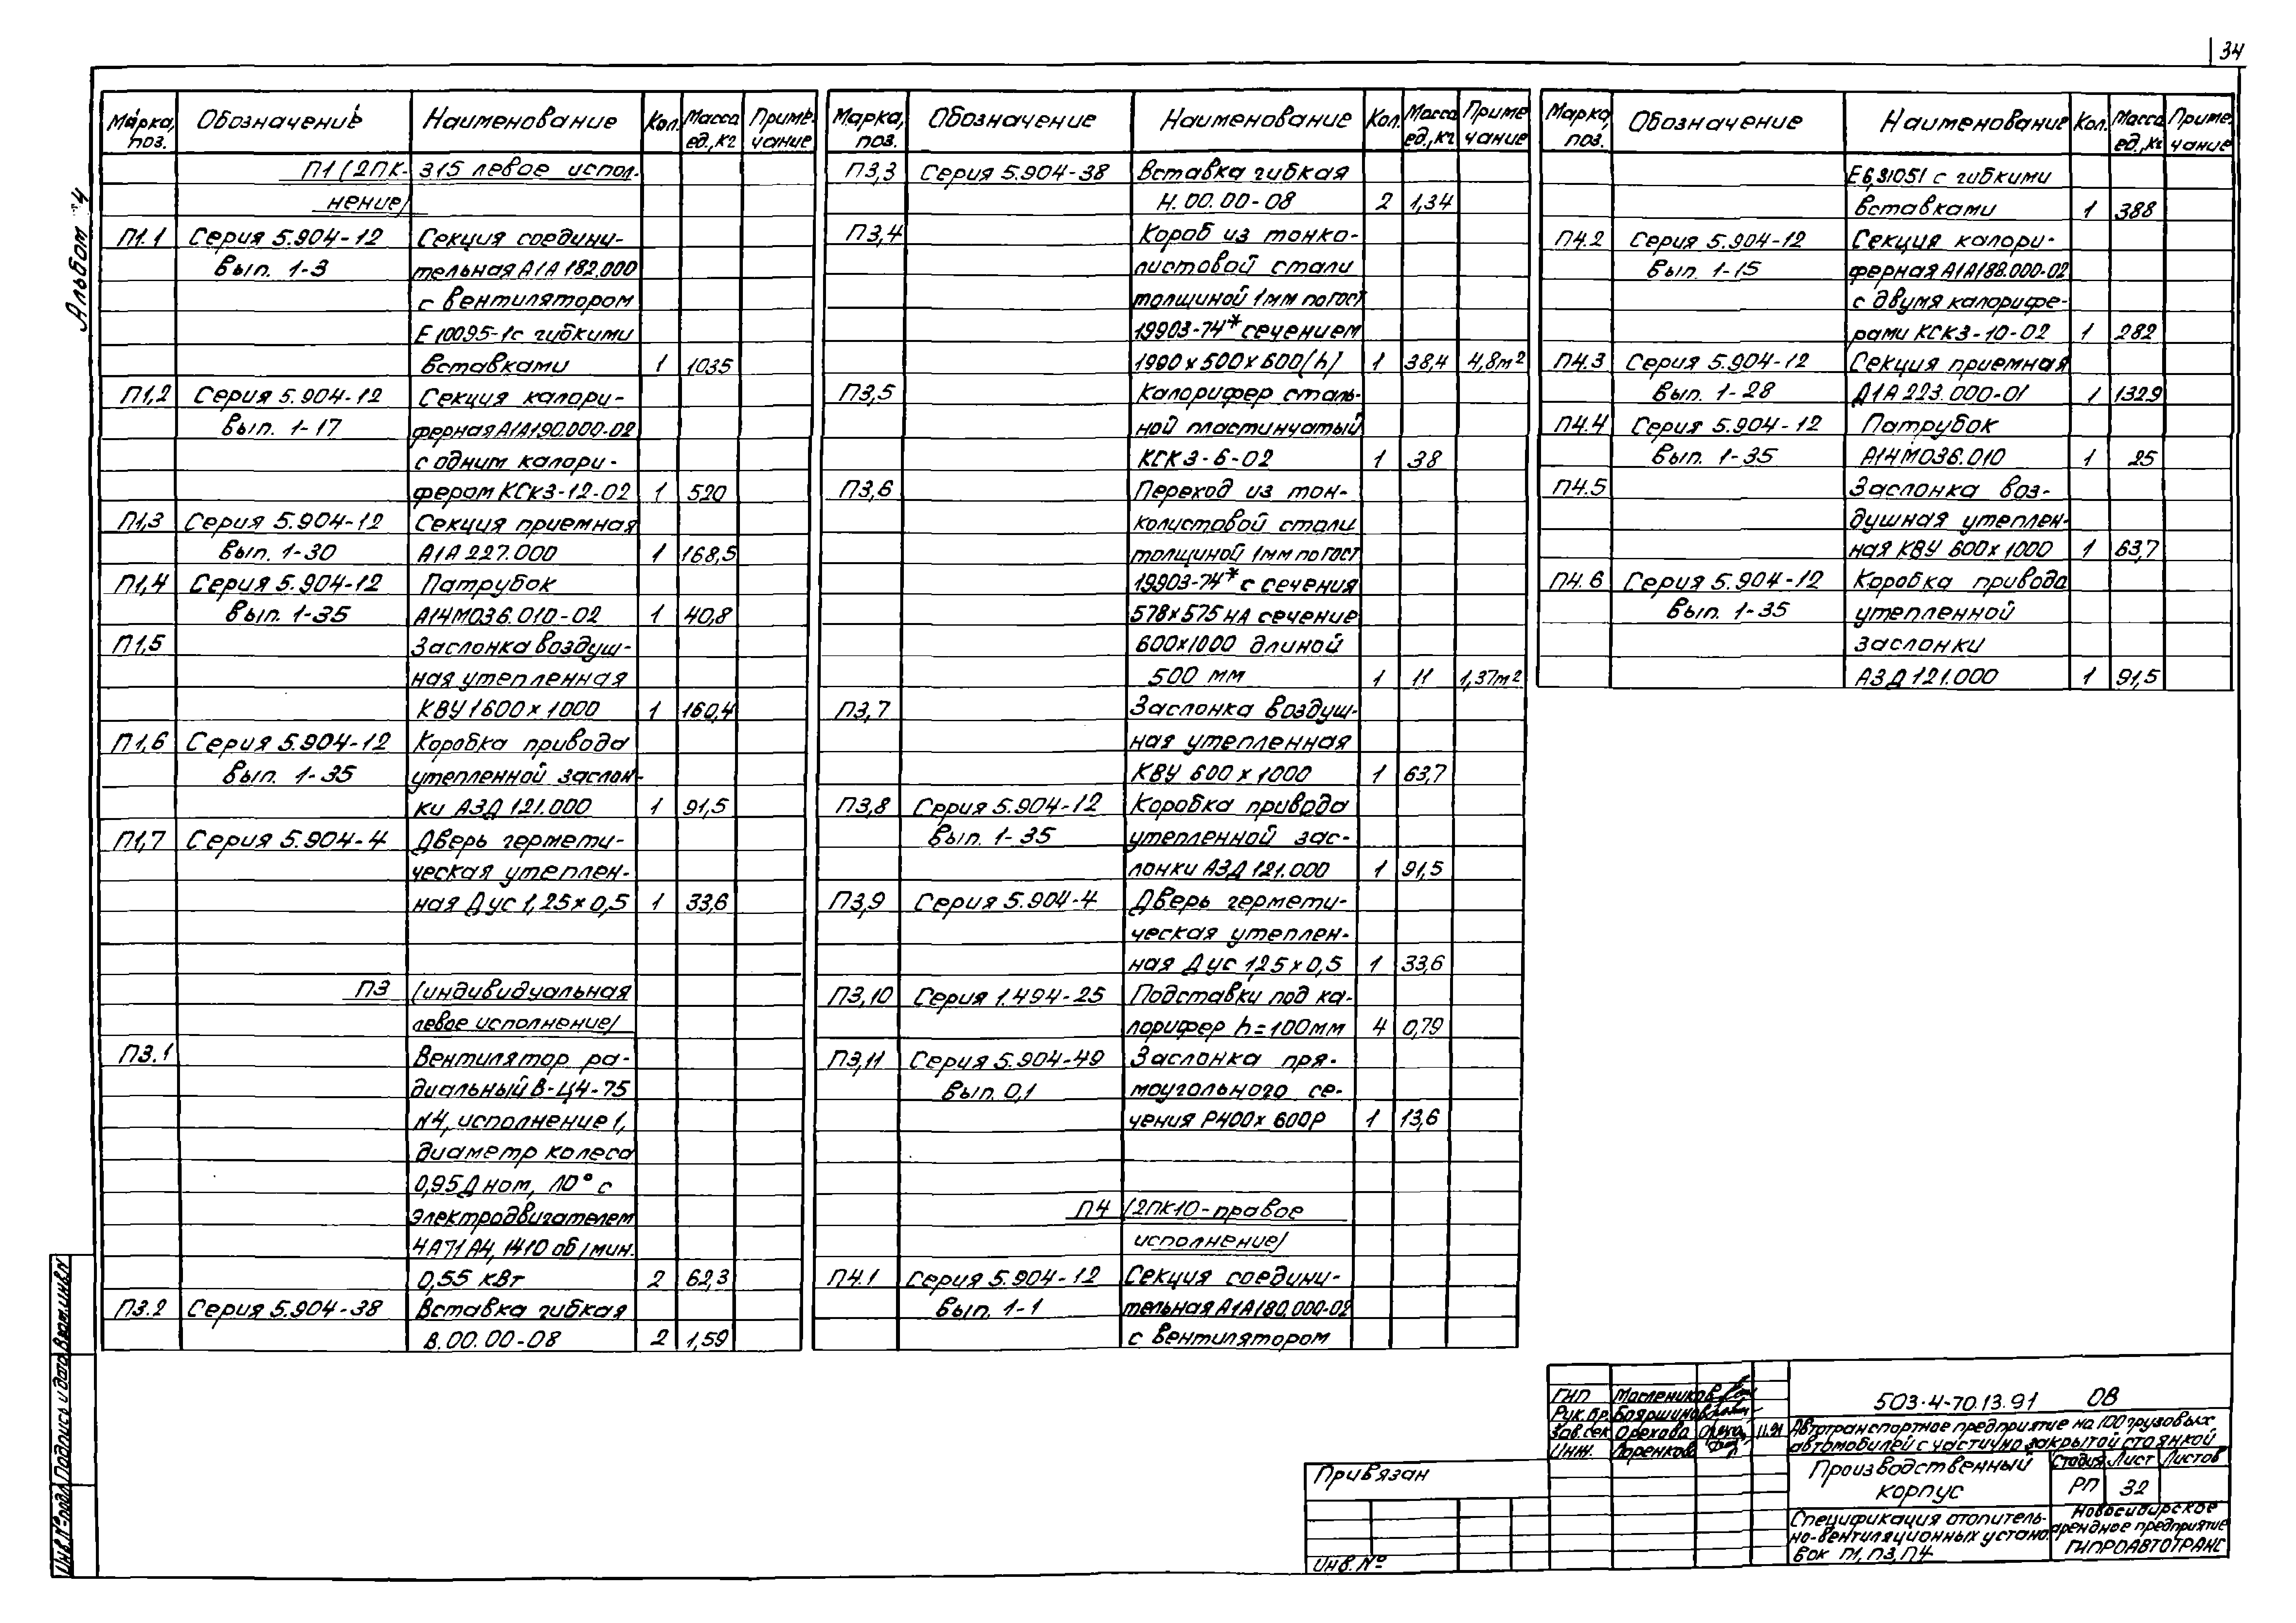 34
Альбом 4
Марка, поз. Обозначение Наименование Кол. Масса ед., кг Примечание
П1 (2ПК-315 левое испол-
нение)
П1.1 Серия 5.904-12 Секция соедини-
Вып. 1-3 тельная А1А 182.000
с вентилятором
Е10095-1с гибкими
вставками 1 1035
П1,2 Серия 5.904-12 Секция калори-
Вып. 1-17 ферная А1А190.000-02
с одним калори-
фером КСк3-12-02 1 520
П1,3 Серия 5.904-12 Секция приемная
Вып. 1-30 А1А 227.000 1 168,5
П1,4 Серия 5.904-12 Патрубок
Вып. 1-35 А14М036.010-02 1 40,8
П1,5 Заслонка воздуш-
ная утепленная
КВУ 1600 х 1000 1 160,4
П1,6 Серия 5.904-12 Коробка привода
Вып. 1-35 утепленной заслон-
ки АЗД 121.000 1 91,5
П1,7 Серия 5.904-4 Дверь гермети-
ческая утеплен-
ная Дус 1,25 х 0,5 1 33,6
П3 (индивидуальная
левое исполнение)
П3.1 Вентилятор ра-
диальный В-Ц4-75
N4, исполнение 1,
диаметр колеса
0,95Д ном, Л0° с
электродвигателем
4А71А4, 1410 об/мин.
0,55 кВт 2 62,3
П3.2 Серия 5.904-38 Вставка гибкая
В.00.00-08 2 1,59
Марка, поз. Обозначение Наименование Кол. Масса ед., кг Примечание
П3,3 Серия 5.904-38 Вставка гибкая
Н.00.00-08 2 1,34
П3,4 Короб из тонко-
листовой стали
толщиной 1мм по ГОСТ
19903-74* сечением
1990 х 500 х 600(h) 1 38,4 4,8м²
П3,5 Калорифер сталь-
ной пластинчатый
КСК 3-6-02 1 38
П3,6 Переход из тон-
колистовой стали
толщиной 1мм по ГОСТ
19903-74* с сечения
578х575 на сечение
600х1000 длиной
500 мм 1 11 1,37м²
П3,7 Заслонка воздуш-
ная утепленная
КВУ 600 х 1000 1 63,7
П3,8 Серия 5.904-12 Коробка привода
Вып. 1-35 утепленной зас-
лонки АЗД 121.000 1 91,5
П3,9 Серия 5.904-4 Дверь гермети-
ческая утеплен-
ная Дус 1,25 х 0,5 1 33,6
П3,10 Серия 1.494-25 Подставки под ка-
лорифер h=100мм 4 0,79
П3,11 Серия 5.904-49 Заслонка пря-
Вып. 0,1 моугольного се-
чения Р400х 600Р 1 13,6
П4 (2ПК10-правое
исполнение)
П4.1 Серия 5.904-12 Секция соедини-
Вып. 1-1 тельная А1А180.000-02
с вентилятором
Марка, поз. Обозначение Наименование Кол. Масса ед., кг Примечание
Е6,31051 с гибкими
вставками 1 388
П4.2 Серия 5.904-12 Секция калори-
Вып. 1-15 ферная А1А188.000-02
с двумя калорифе-
рами КСК3-10-02 1 282
П4.3 Серия 5.904-12 Секция приемная
Вып. 1-28 Д1А 223.000-01 1 132,9
П4.4 Серия 5.904-12 Патрубок
Вып. 1-35 А14М036.010 1 25
П4.5 Заслонка воз-
душная утеплен-
ная КВУ 600 х 1000 1 63,7
П4.6 Серия 5.904-12 Коробка привода
Вып. 1-35 утепленной
заслонки
АЗД 121.000 1 91,5
Инв.№ подл. Подпись и дата Взам.инв.N
Привязан
Инв. №
ГИП Маслеников
Рук.бр. Бояршинов
Зав.сек Орехова 11.91
Инж.
503-4-70.13.91 ОВ
Автотранспортное предприятие на 100 грузовых
автомобилей с частично закрытой стоянкой
Производственный
корпус
Стадия Лист Листов
РП 32
Спецификация отопитель-
но-вентиляционных устано-
вок П1, П3, П4
Новосибирское
арендное предприятие
ГИПРОАВТОТРАНС